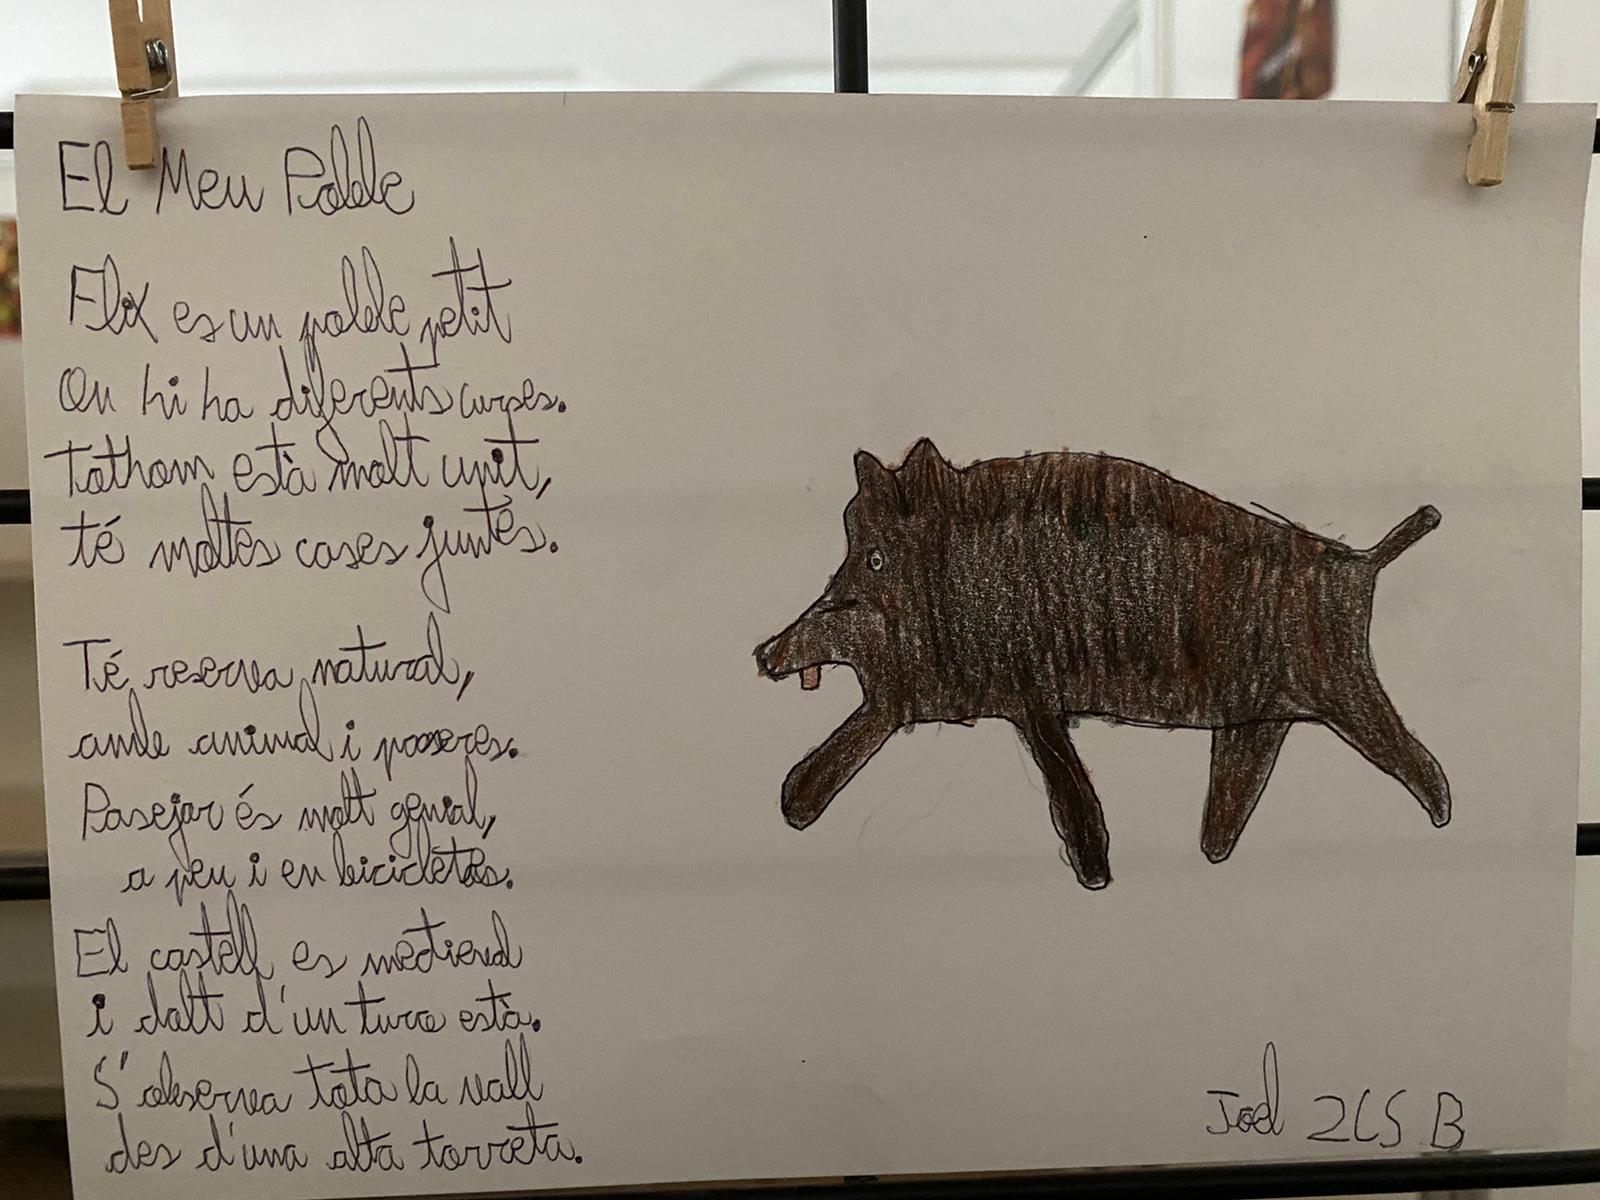 El Meu Poble
Flix es un poble petit
On hi ha diferents curses.
Tothom està molt unit,
té moltes cases juntes.
Té reserva natural,
amb animal i
Pasejar és molt genial,
a peu i en bicicletas.
El castell es medieval
i dalt d'un turo està.
S'observa tota la vall
des d'una alta torreta.
Joel 2CS B